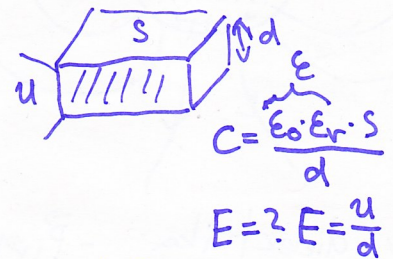 S
d
u
ε
C = ε₀·εᵣ·S
d
E=? E= u
d